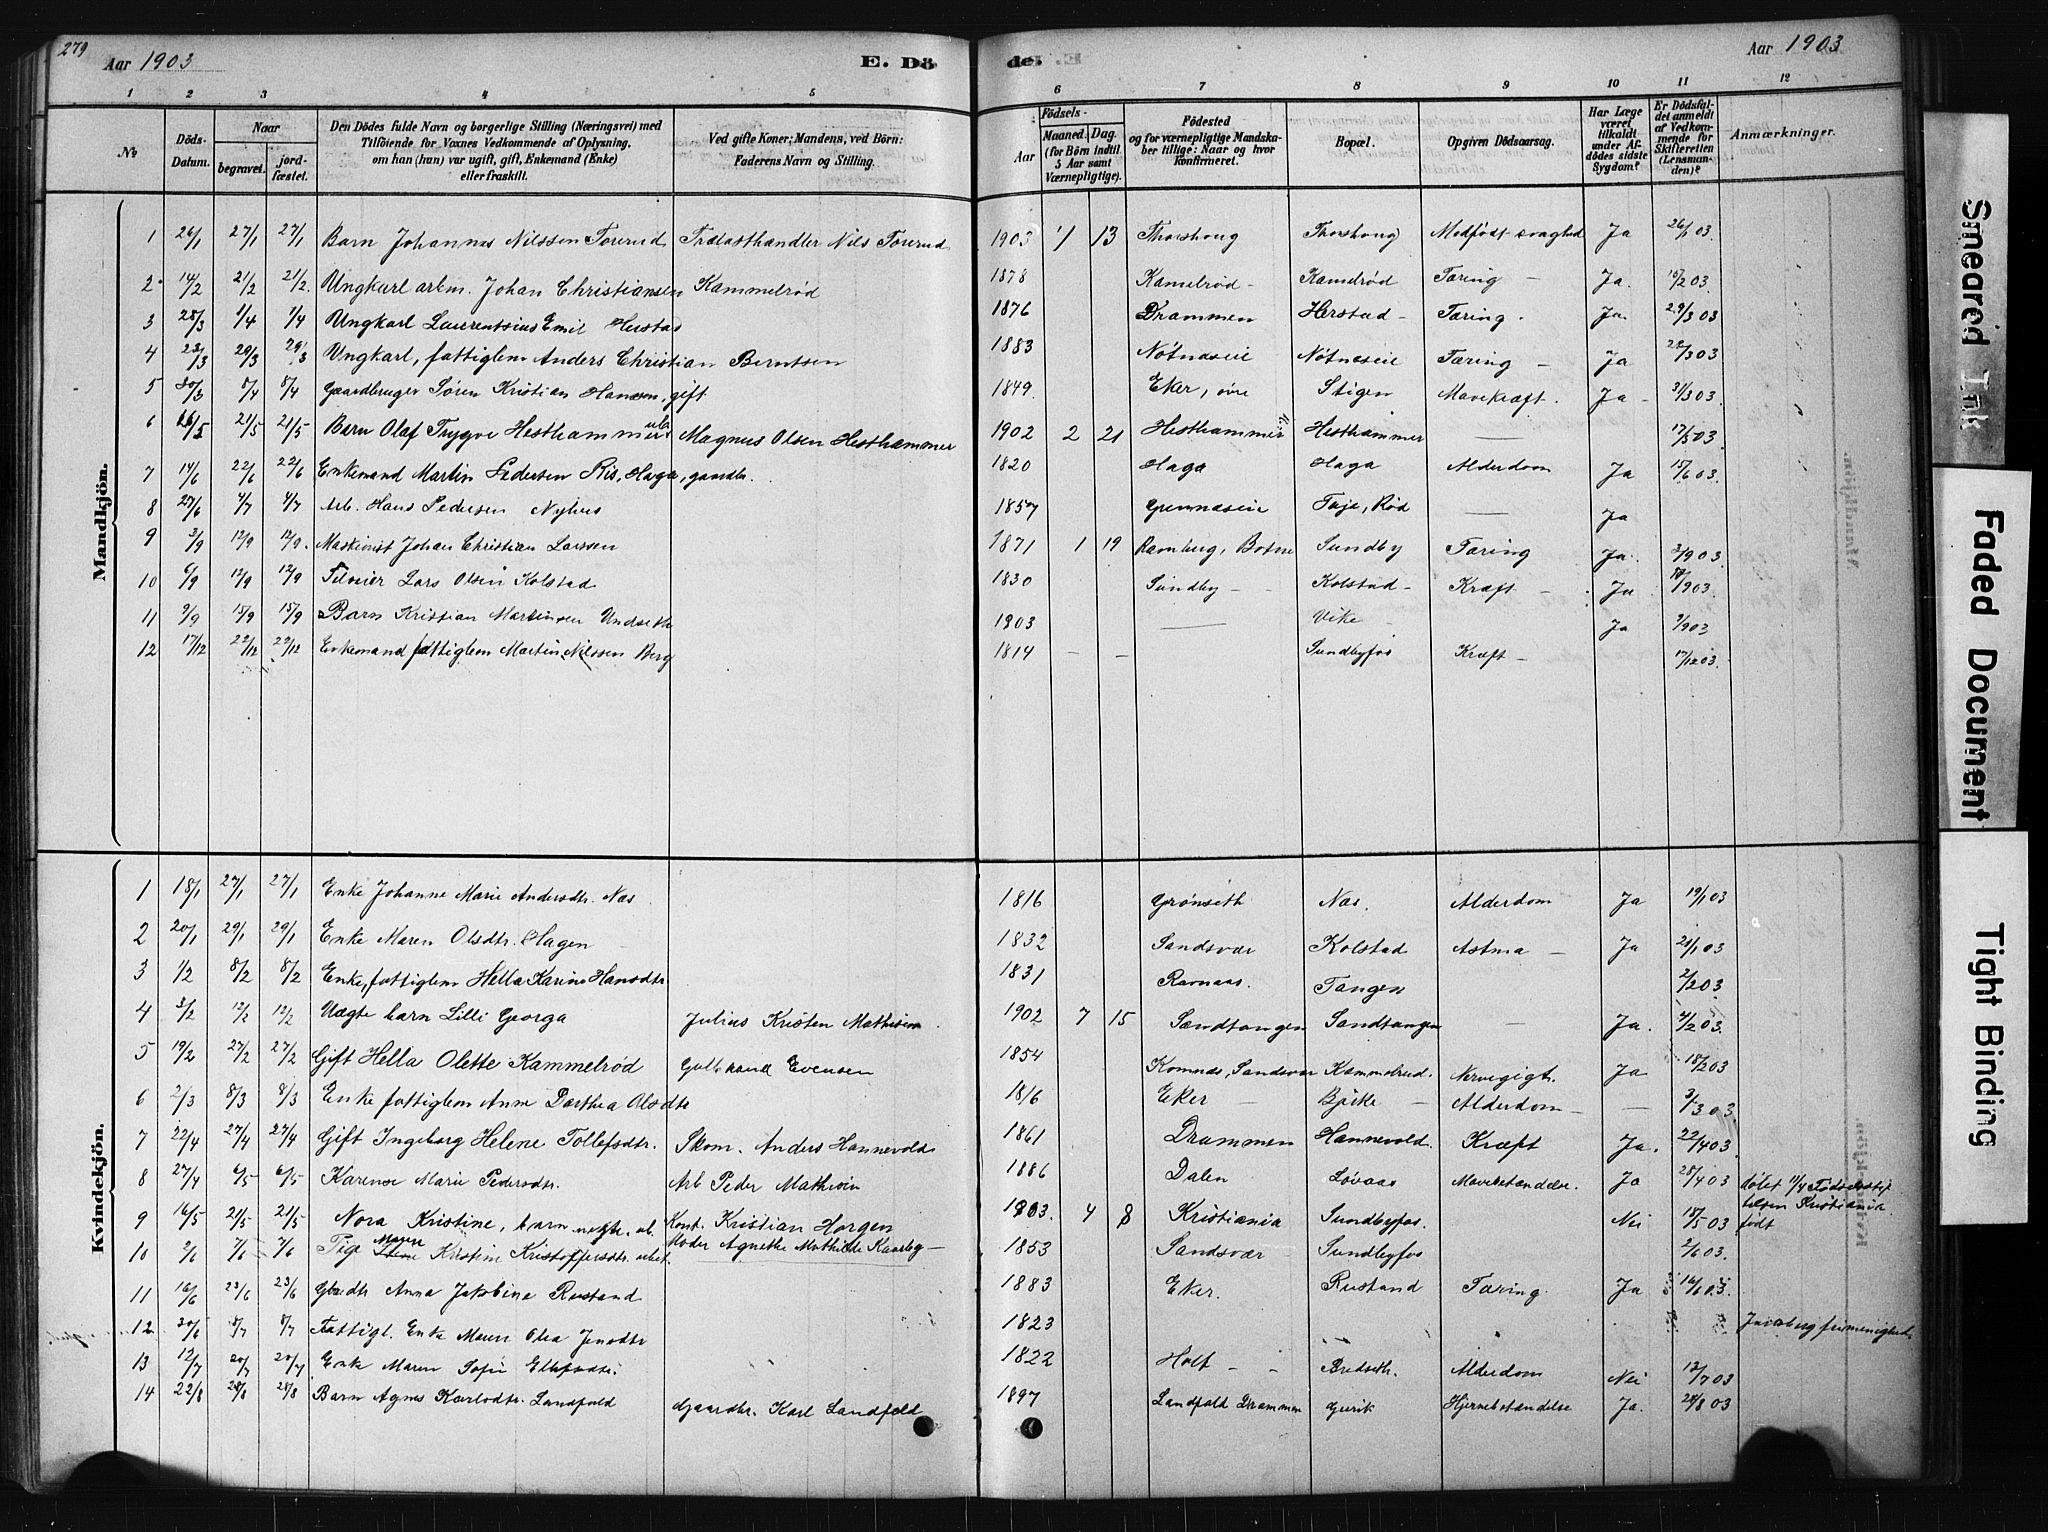 279
Aar 1903
E. Dö
de.
Aar 1903
1 2 3 4 5 6 7 8 9 10 11 12
No
Döds-Datum.
Naar
begravet.
jord-fæstet.
Den Dödes fulde Navn og borgerlige Stilling (Næringsvei) med
Tilföiende for Voxnes Vedkommende af Oplysning,
om han (hun) var ugift, gift, Enkemand (Enke)
eller fraskilt.
Ved gifte Koner: Mandens, ved Börn:
Faderens Navn og Stilling.
Födsels-
Aar
Maaned. Dag.
(for Börn indtil
5 Aar samt
Værnepligtige).
Födested
og for værnepligtige Mandska-
ber tillige: Naar og hvor
konfirmeret.
Bopæl.
Opgiven Dödsaarsag.
Har Læge
været
tilkaldt
under Af-
dödes sidste
Sygdom?
Er Dödsfal-
det anmeldt
af Vedkom-
mende for
Skifteretten
(Lensman-
den)?
Anmærkninger.
Mandkjön.
1 26/1 27/1 27/1 Barn Johannes Nilssen Torerud Trælasthandler Nils Torerud 1903 1/ 13 Thorshoug Thorshoug Medfødt svaghed Ja 26/1 03
2 14/2 21/2 21/2 Ungkarl arbm. Johan Christiansen Kammelrød 1878 Kamelrød Kamelrød Tæring Ja. 16/2 03
3 28/3 1/4 1/4 Ungkarl Laurentsius Emil Herstad 1876 Drammen Herstad Tæring. Ja. 29/3 03
4 23/3 29/3 29/3 Ungkarl, fattiglem Anders Christian Berntsen 1883 Nøtnæseie Nøtnæseie Tæring Ja 24/3 03
5 30/3 8/4 8/4 Gaardbruger Søren Kristian Hansen, gift 1849 Eker, øvre Stigen Mavekræft. Ja 31/3 03
6 16/5 21/5 21/5 Barn Olaf Trygve Hesthammer Magnus Olsen Hesthammer 1902 2 21 Hesthammer Hesthammer — 17/5 03
7 14/6 22/6 22/6 Enkemand Martin Pedersen Ris, Haga, gaardbr. 1820 Haga Haga Alderdom Ja 15/6 03
8 27/6 4/7 4/7 Arb. Hans Pedersen Nyhus 1857 Grennæseie Teje, Rød — Ja
9 3/9 12/9 12/9 Maskinist Johan Christian Larssen 1871 1 19 Ramberg, Botne Sundby Tæring Ja. 3/9 03
10 6/9 12/9 12/9 Selveier Lars Olsen Kolstad 1830 Sundby Kolstad Kræft Ja /9 03
11 9/9 15/9 15/9 Barn Kristian Martinsen Undseth 1903 — Vike Ja 9/9 03
12 17/12 22/12 22/12 Enkemand fattiglem Martin Nilssen Berg 1814 — — Sundbyfos Kræft 17/12 03
Kvindekjön.
1 18/1 27/1 27/1 Enke Johanne Marie Andersdtr. Næs 1816 Grønseth Næs. Alderdom Ja 19/1 03
2 20/1 29/1 29/1 Enke Maren Olsdtr. Hagen 1832 Sandsvær Kolstad Astma Ja 21/1 03
3 1/2 8/2 8/2 Enke, fattiglem Hella Karine Hansdtr 1831 Ravnaas. Tangen 2/2 03
4 3/2 12/2 12/2 Uægte barn Lilli Georga Julius Kristen Mathisen 1902 7 15 Sandtangen Sandtangen — Ja. 4/2 03
5 19/2 27/2 27/2 Gift Hella Olette Kammelrød Gulbrand Evensen 1854 Komnæs, Sandsvær Kammelrud. Nervegigt. Ja 18/2 03
6 2/3 8/3 8/3 Enke fattiglem Anne Dorthea Olsdtr 1816 Eker Bjerke Alderdom — 3/3 03
7 22/4 27/4 27/4 Gift Ingeborg Helene Tollefsdtr. Skom. Anders Hannevold 1861 Drammen Hannevold. Kræft Ja. 22/4 03
8 27/4 6/5 6/5 Karense Marie Pedersdtr. Arb Peder Mathisen 1886 Dalen Løvaas Mavebetændelse. Ja 28/4 03 døbt 11/4 Fødselsstif
9 16/5 21/5 21/5 Nora Kristine, barn uægte, ub. Kont. Kristian Horgen 1903. 4 8 Kristiania Sundbyfos. Nei 18/5 03 telsen Kristiania født
Moder Agnethe Mathilde Kaarby
10 2/6 7/6 7/6 Pige Maren Kristine Kristoffersdtr. arbei. 1853 Sandsvær Sundbyfos 2/6 03.
11 16/6 23/6 23/6 Gbrdtr Anna Jakobine Rustand 1883 Eker. Rustand Tæring. Ja 16/6 03.
12 30/6 8/7 8/7 Fattigl. Enke Maren Olea Jensdtr 1823 Jarlsberg frimenighed
13 12/7 20/7 20/7 Enke Maren Sofie Ellefsdtr. 1822 Holt Bredseth. Alderdom Nei 12/7 03
14 22/8 28/8 28/8 Barn Agnes Karlsdtr. Landfald Gaardbr. Karl Landfald 1897 Landfald Drammen Gurik Hjernebetændelse Ja. 24/8 03
Smeared Ink
Faded Document
Tight Binding